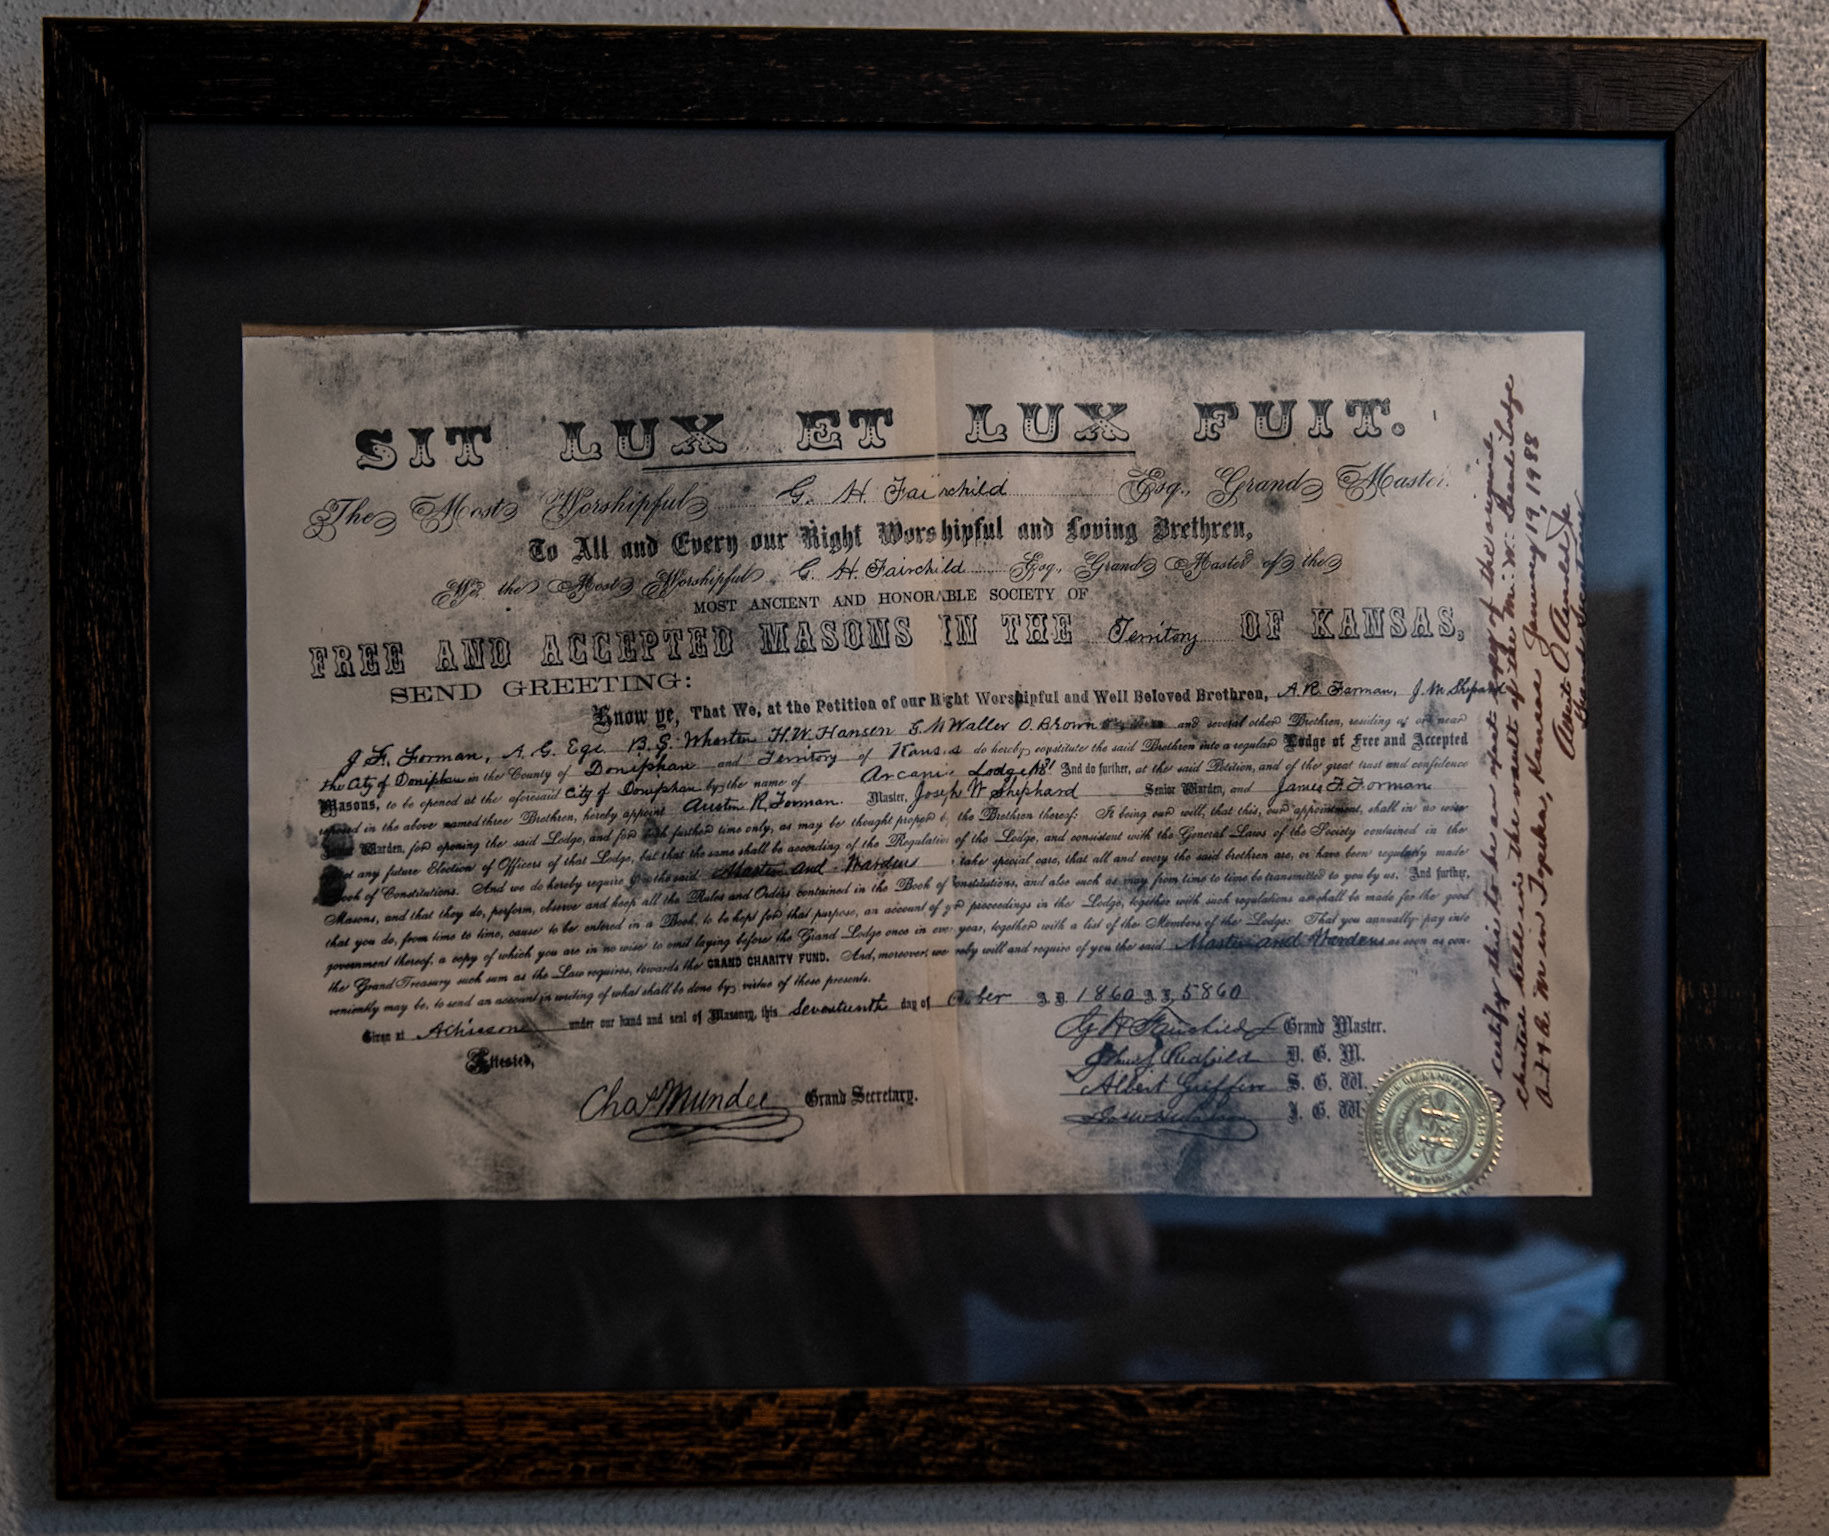 SIT LUX ET LUX FUIT.
The Most Worshipful G. H. Fairchild Esq., Grand Master.
To All and Every our Right Worshipful and Loving Brethren,
We the Most Worshipful G. H. Fairchild Esq., Grand Master of the
MOST ANCIENT AND HONORABLE SOCIETY OF
FREE AND ACCEPTED MASONS IN THE Territory OF KANSAS,
SEND GREETING:
Know ye, That We, at the Petition of our Right Worshipful and Well Beloved Brethren, A. R. Forman, J. W. Shepard
J. F. Forman, A. G. Ege B. G. Wharton H. W. Hansen O. Brown and several other Brethren, residing at or near
the City of Doniphan in the County of Doniphan and Territory of Kansas do hereby constitute the said Brethren into a regular Lodge of Free and Accepted
Masons, to be opened at the aforesaid City of Doniphan by the name of Arcane Lodge And do further, at the said Petition, and of the great trust and confidence
reposed in the above named three Brethren, hereby appoint Austin R. Forman. Master, Joseph W Shephard Senior Warden, and James F. Forman
Warden, for opening the said Lodge, and for such further time only, as may be thought proper by the Brethren thereof: It being our will, that this, our appointment, shall in no wise
any future Election of Officers of that Lodge, but that the same shall be according of the Regulations of the Lodge, and consistent with the General Laws of the Society contained in the
Book of Constitutions. And we do hereby require the said Master and Wardens take special care, that all and every the said brethren are, or have been regularly made
Masons, and that they do, perform, observe and keep all the Rules and Orders contained in the Book of Constitutions, and also such as may from time to time be transmitted to you by us. And further,
that you do, from time to time, cause to be entered in a Book, to be kept for that purpose, an account of proceedings in the Lodge, together with such regulations as shall be made for the good
government thereof, a copy of which you are in no wise to omit laying before the Grand Lodge once in every year, together with a list of the Members of the Lodge: That you annually pay into
the Grand Treasury such sum as the Law requires, towards the GRAND CHARITY FUND. And, moreover, we will and require of you the said Master and Wardens as soon as con-
veniently may be, to send an account in writing of what shall be done by virtue of these presents.
Given at Atchison under our hand and seal of Masonry, this Seventeenth day of 1860 5860
Attested,
Chas Mundee Grand Secretary.
G H Fairchild Grand Master.
Redfield D. G. M.
Albert Griffin S. G. W.
J. G. W.
I certify this to be an exact copy of the original
charter held in the vault of the M. W. Grand Lodge
A. F. & A. M. in Topeka, Kansas January 19, 1988
Grand Secretary